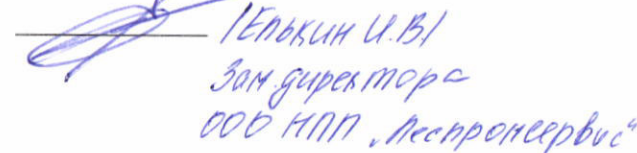 /Елькин И.В/
Зам. директора
ООО НПП „Леспромсервис"